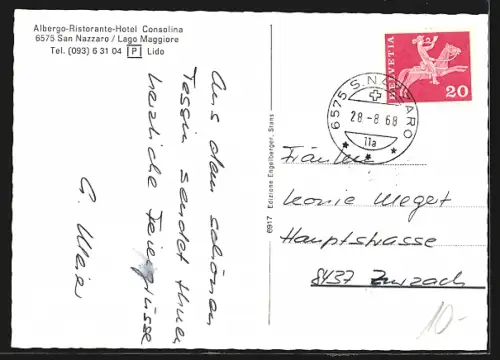 Albergo-Ristorante-Hotel Consolina
6575 San Nazzaro / Lago Maggiore
Tel. (093) 6 31 04 P Lido
Aus dem schönen
Tessin sendet Ihnen
herzliche Feriengrüsse
G. Meier
6917 Edizione Engelberger, Stans
HELVETIA
20
6575 S. NAZZARO
28-8 68
11a
Fräulein
Leonie Megert
Hauptstrasse
8437 Zurzach
10.-